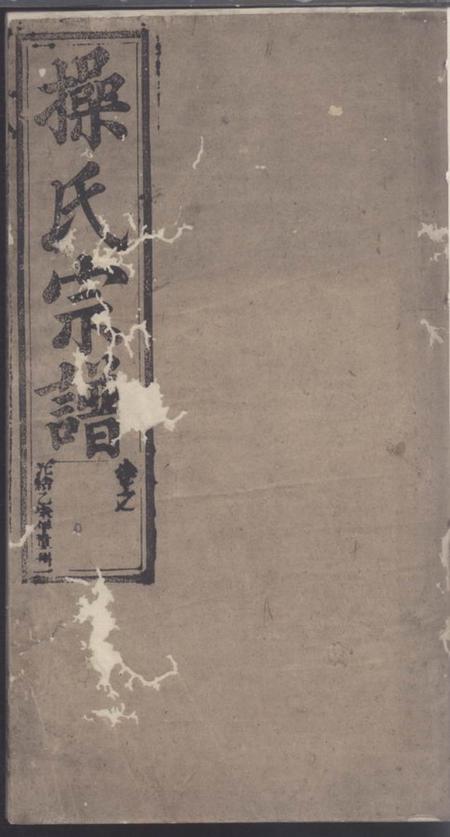 操氏宗譜
卷之
光緒乙亥年重刊